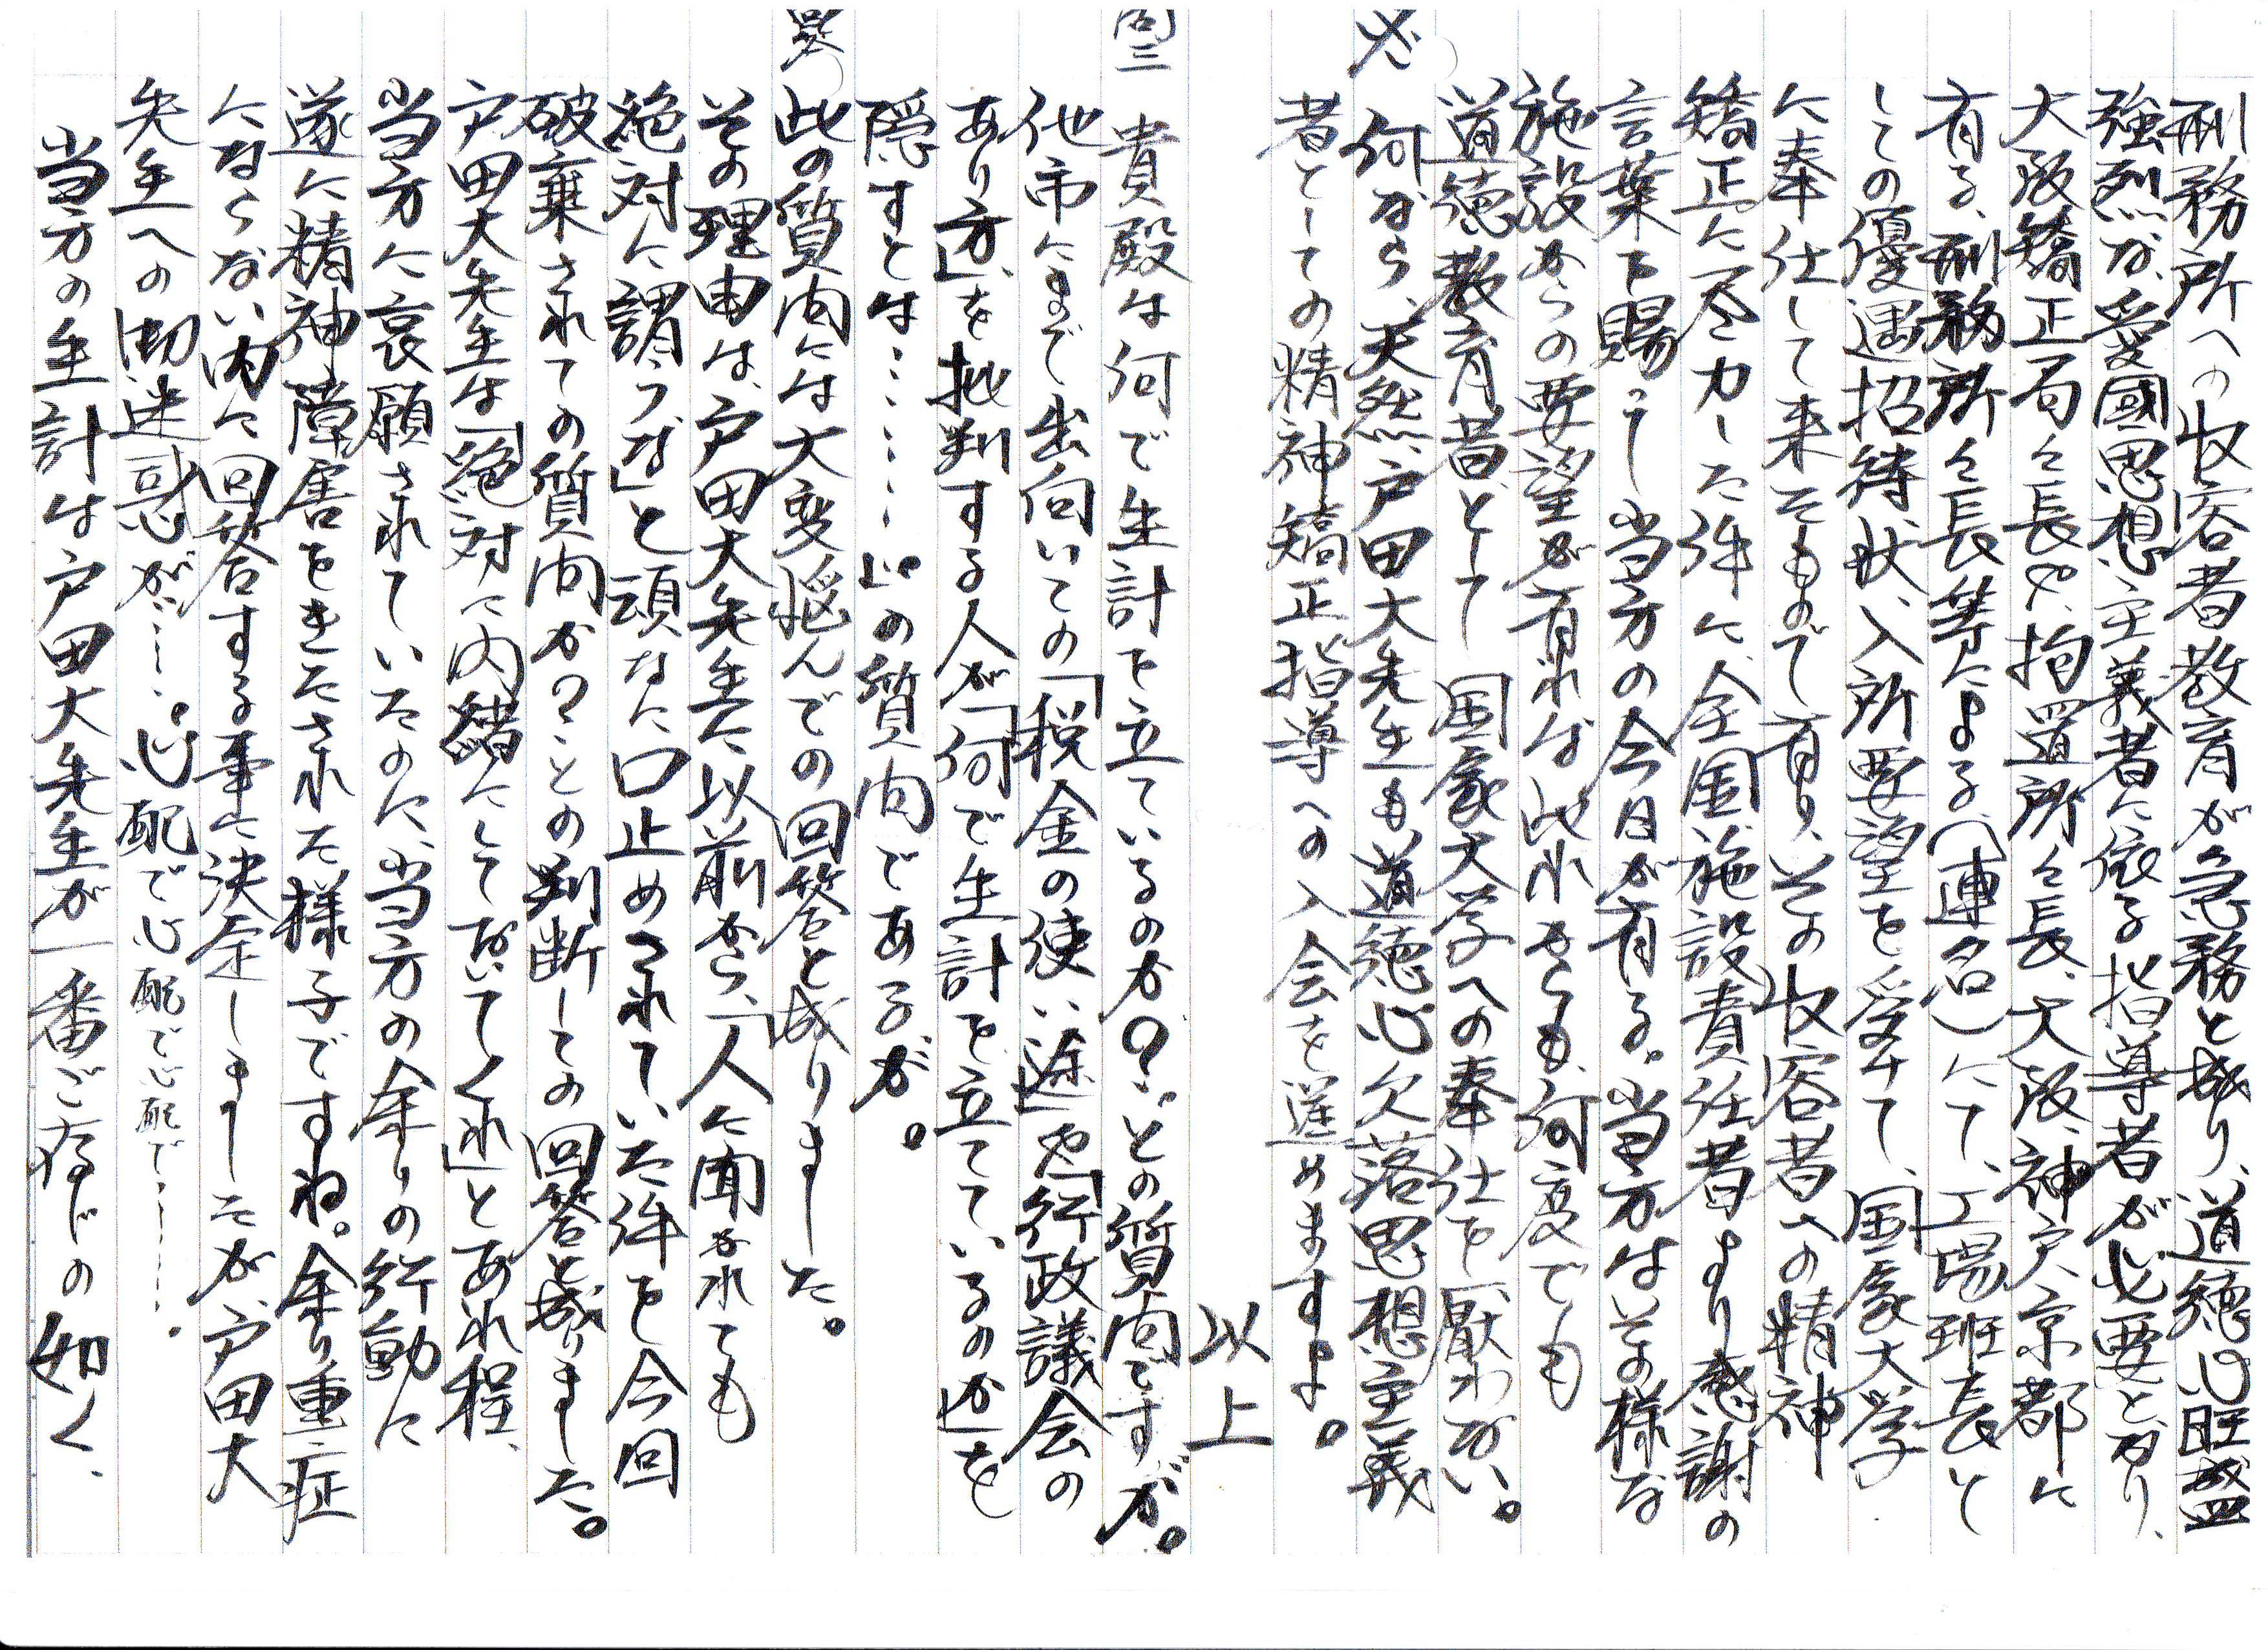 刑務所への収容者教育が急務と成り、道徳心旺盛
強烈な愛國思想主義者に依る指導者が必要となり、
大阪矯正局々長や、拘置所々長、大阪、神戸、京都に
有る、刑務所々長等による、(連名)にて、工場班長と
しての優遇招待状、入所要望を受けて、国家大学
に奉仕して来たもので有り、その収容者への精神
矯正に尽力した件に、全国施設責任者より感謝の
言葉を賜って当方の今日が有る。当方はその様な
施設からの要望が有れば此れからも、何度でも
道徳教育者として国家大学への奉仕を厭わない。
必 何なら、天然戸田大先生も、道徳心欠落思想主義
者としての精神矯正指導への入会を進めますよ。
以上
問三 貴殿は何で生計を立ているのか?…との質問ですが。
他市にまで出向いての「税金の使い途」や「行政議会の
あり方」を批判する人が「何で生計を立てているのか」を
隠すとは………」の質問であるが。
此の質問には大変悩んでの回答と成りました。
その理由は、戸田大先生に以前から、「人に聞かれても
絶対に謂うな」と頑なに口止めされていた件を今回
破棄されての質問か?との判断しての回答と成りました。
戸田大先生は「絶対に内緒にしておいてくれ」とあれ程、
当方に哀願されていたのに、当方の余りの行動に
遂に精神障害をきたされた様子ですね。余り重症
にならない内に回答する事に決定しましたが、戸田大
先生への御迷惑が……心配で心配で心配で……。
当方の生計は戸田大先生が一番ご存じの如く、